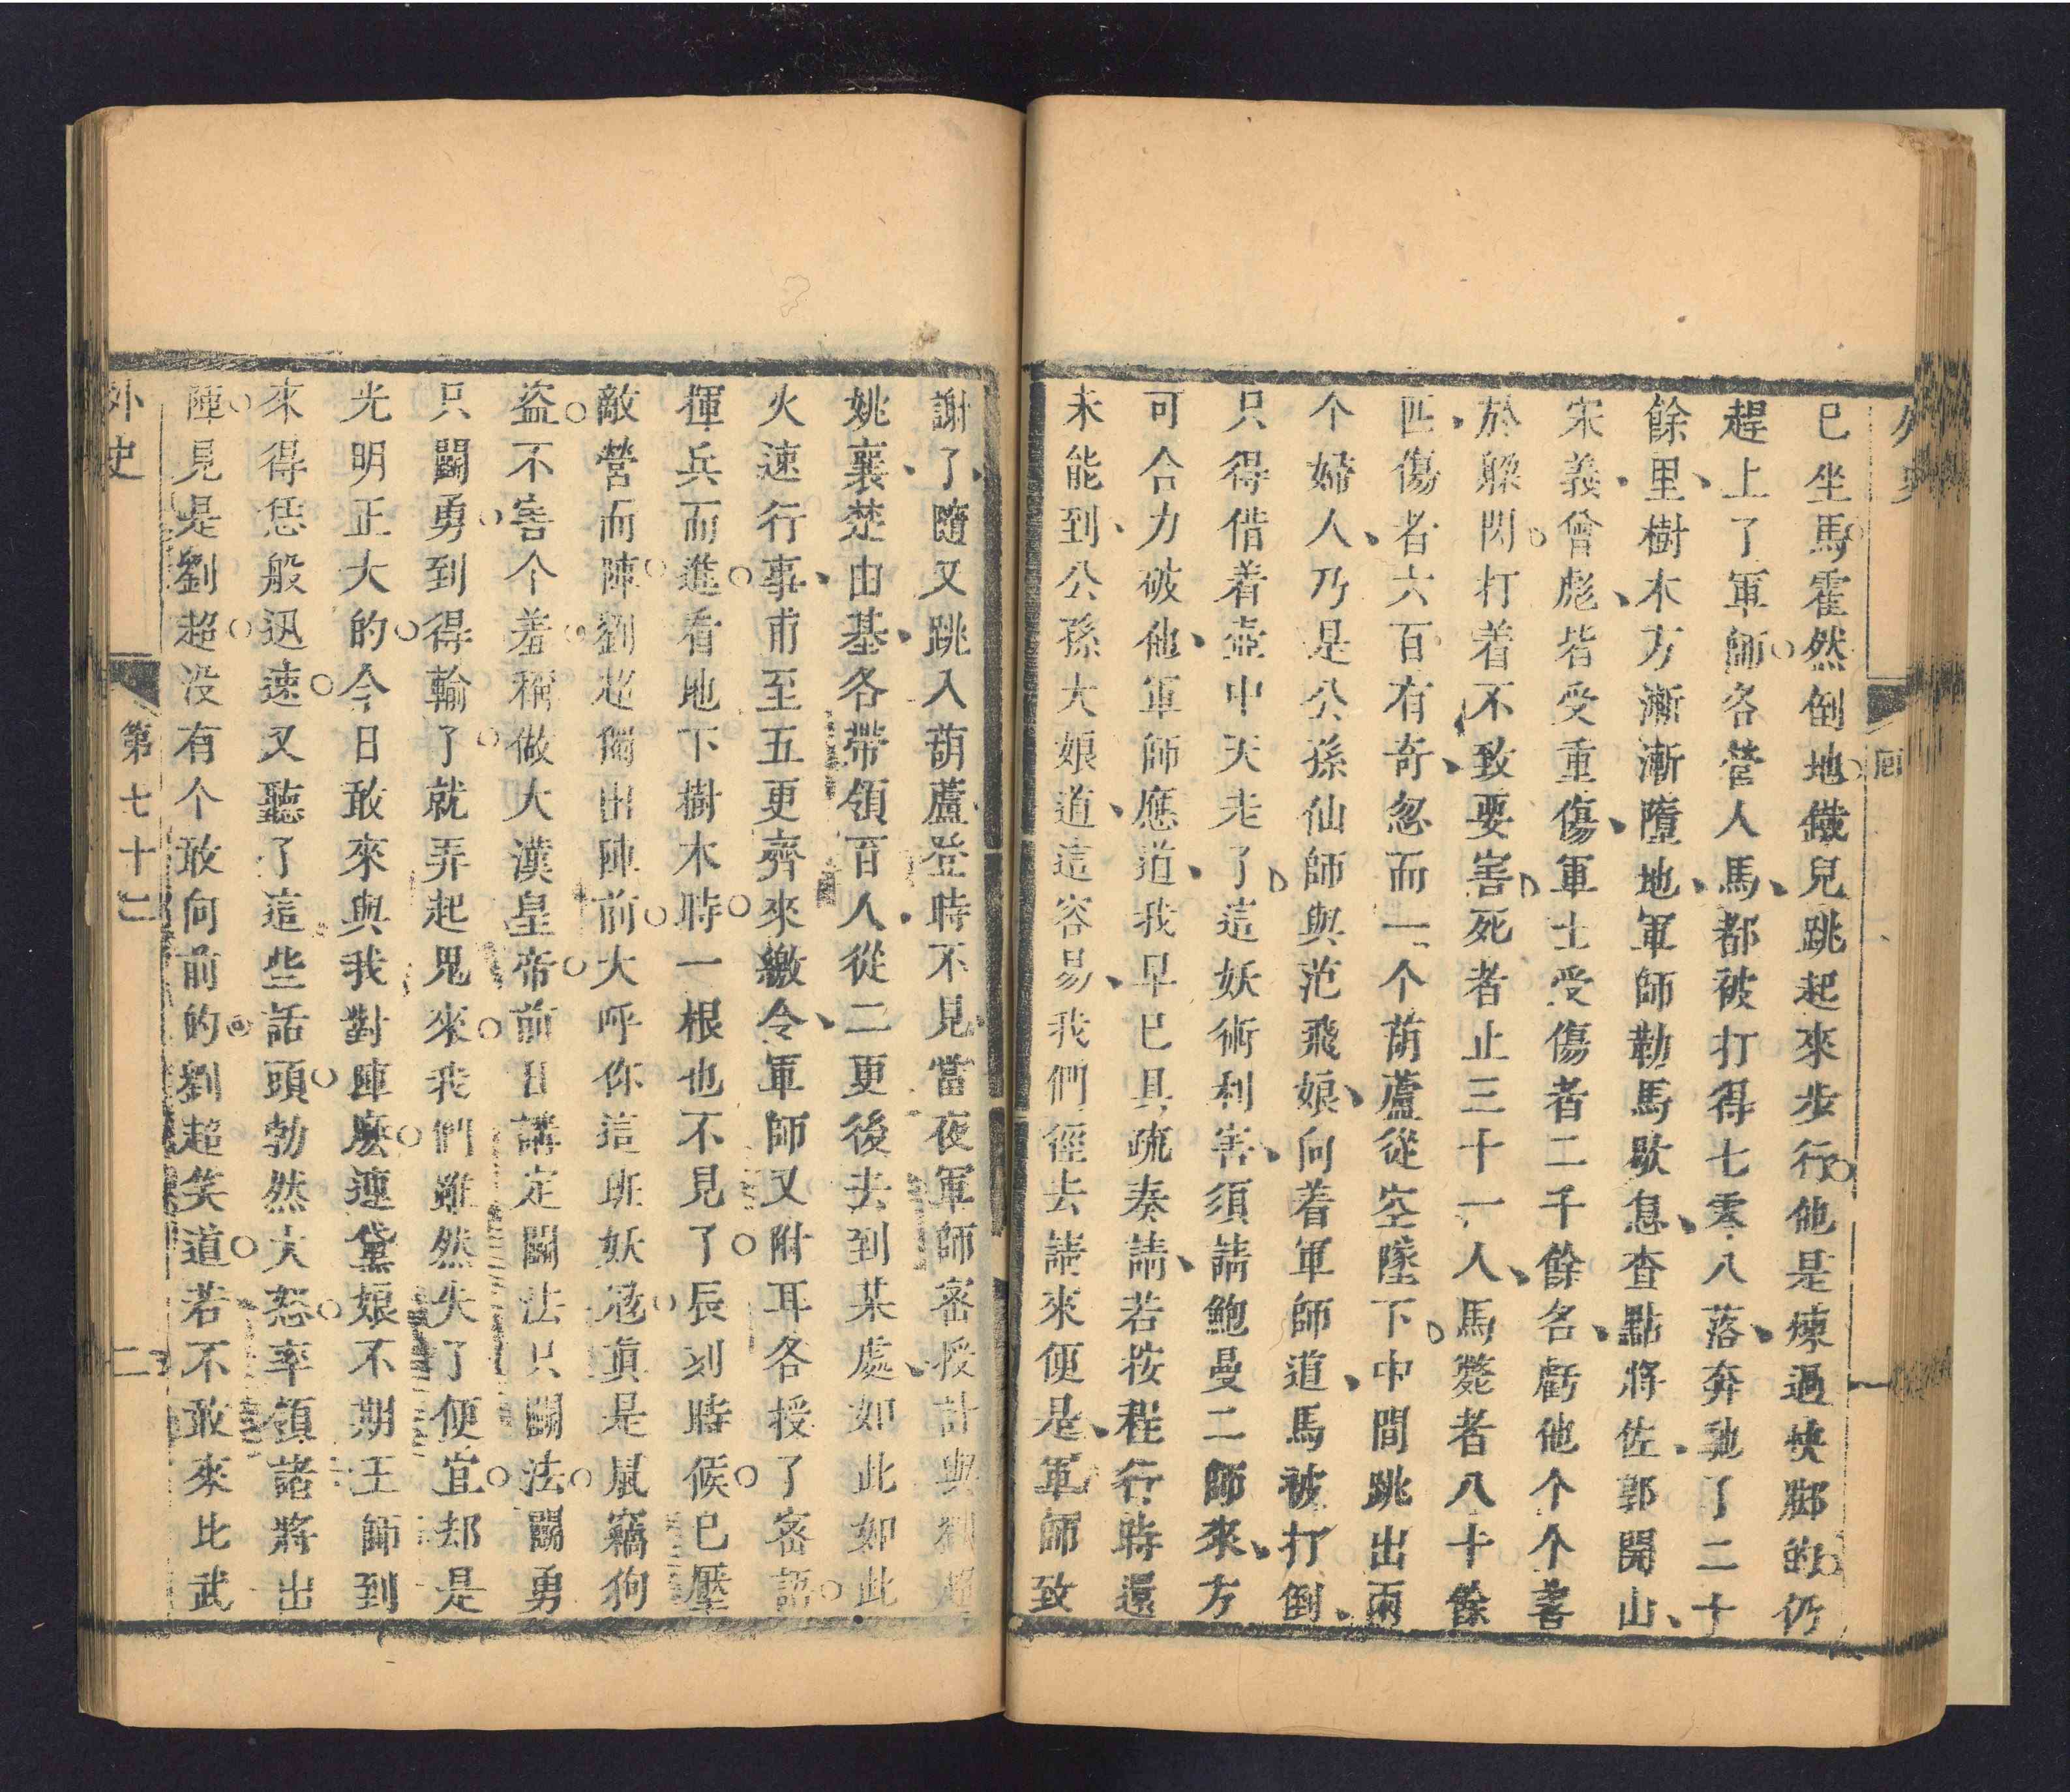 外史
回
一
已坐馬霍然倒地鐵兒跳起來步行他是煉過快脚的仍
趕上了軍師各營人馬都被打得七零八落奔馳了二十
餘里樹木方漸漸墮地軍師勒馬歇息查點將佐郭開山
宋義曾彪皆受重傷軍士受傷者二千餘名虧他个个善
於躱閃打着不致要害死者止三十一人馬斃者八十餘
匹傷者六百有奇忽而一个葫蘆從空墜下中間跳出兩
个婦人乃是公孫仙師與范飛娘向着軍師道馬被打倒
只得借着壺中天走了這妖術利害須請鮑曼二師來方
可合力破他軍師應道我早已具疏奏請若按程行時還
未能到公孫大娘道這容易我們徑去請來便是軍師致
謝了隨又跳入葫蘆登時不見當夜軍師密授計與劉超
姚襄楚由基各帶領百人從二更後去到某處如此如此
火速行事甫至五更齊來繳令軍師又附耳各授了密語
揮兵而進看地下樹木時一根也不見了辰刻時候已壓
敵營而陣劉超獨出陣前大呼你這班妖冦眞是鼠竊狗
盜不害个羞稱做大漢皇帝前日講定鬭法只鬭法鬭勇
只鬭勇到得輸了就弄起鬼來我們雖然失了便宜却是
光明正大的今日敢來與我對陣麽連黛娘不期王師到
來得恁般迅速又聽了這些話頭勃然大怒率領諸將出
陣見是劉超没有个敢向前的劉超笑道若不敢來比武
外史
第七十二
二